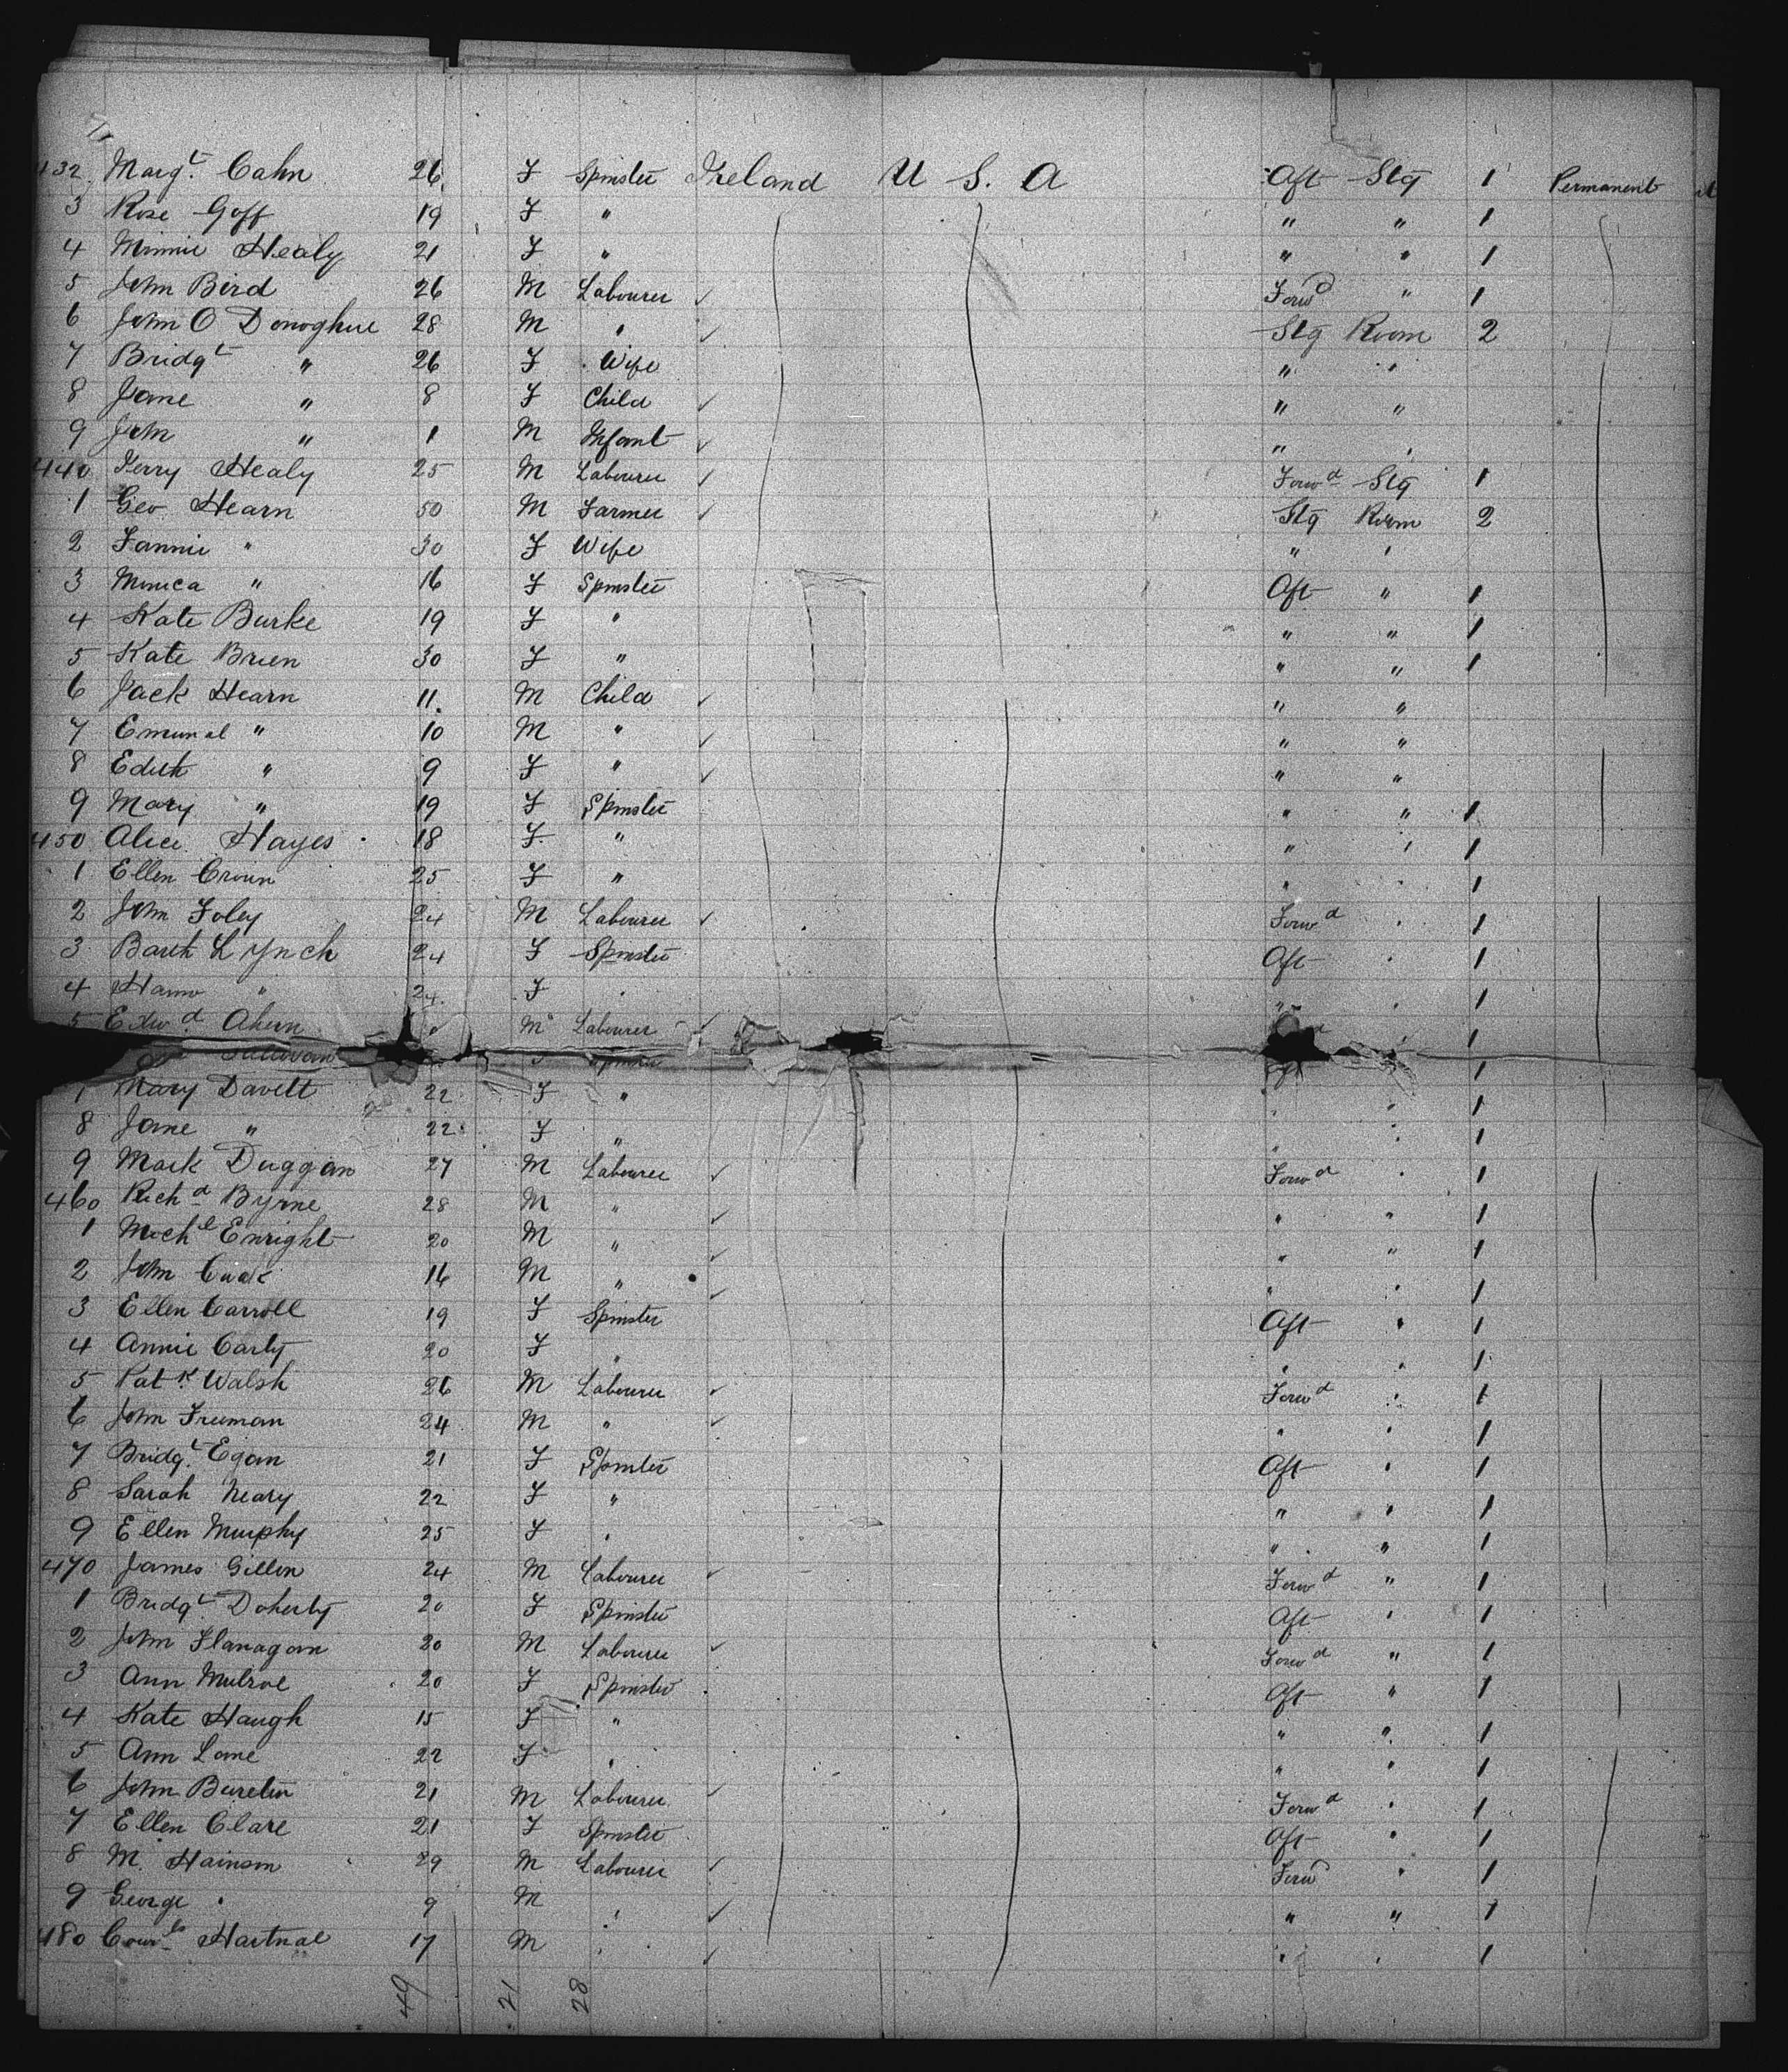 432 Margt. Cahn 26 F Spinster Ireland U S. A Aft Stg 1 Permanent
3 Rose Goff 19 F " " " 1
4 Minnie Healy 21 F " " " 1
5 John Bird 26 M Labourer ✓ Forwd " 1
6 John O Donoghue 28 M " ✓ Stg Room 2
7 Bridgt " 26 F Wife " "
8 Jane " 8 F Child ✓ " "
9 John " 1 M Infant ✓ " "
440 Jerry Healy 25 M Labourer ✓ Forwd Stg 1
1 Geo Hearn 50 M Farmer ✓ Stg Room 2
2 Fannie " 30 F Wife " "
3 Monica " 16 F Spinster Aft " 1
4 Kate Burke 19 F " " " 1
5 Kate Brien 30 F " " " 1
6 Jack Hearn 11. M Child ✓ " "
7 " 10 M " ✓ " "
8 Edith " 9 F " ✓ " "
9 Mary " 19 F Spinster " " 1
450 Alice Hayes 18 F. " " " 1
1 Ellen Cronin 25 F " " " 1
2 John Foley 24 M Labourer ✓ Forwd " 1
3 Lynch 24 F Spinster Aft " 1
4 " 24 F " " " 1
5 Edwd. Ahern M Labourer ✓ 1
Sullivan Spinster 1
7 Mary Davitt 22 F " " " 1
8 Jane " 22 F " " " 1
9 Mark Duggan 27 M Labourer ✓ Forwd " 1
460 Richd Byrne 28 M " ✓ " " 1
1 Michl Enright 20 M " ✓ " " 1
2 John 16 M " ✓ " " 1
3 Ellen Carroll 19 F Spinster Aft " 1
4 Annie Carty 20 F " " " 1
5 Patk. Walsh 26 M Labourer ✓ Forwd " 1
6 John Freeman 24 M " ✓ " " 1
7 Bridgt. Egan 21 F Spinster Aft " 1
8 Sarah Neary 22 F " " " 1
9 Ellen Murphy 25 F " " " 1
470 James Gillen 24 M Labourer ✓ Forwd " 1
1 Bridgt. Doherty 20 F Spinster Aft " 1
2 John Flanagan 20 M Labourer ✓ Forwd " 1
3 Ann Mulroe 20 F Spinster Aft " 1
4 Kate Haugh 15 F " " " 1
5 Ann Lane 22 F " " " 1
6 John 21 M Labourer ✓ Forwd " 1
7 Ellen Clare 21 F Spinster Aft " 1
8 M. Hainson 29 M Labourer ✓ Forwd " 1
9 George " 9 M " ✓ " " 1
480 Hartnal 17 M " ✓ " " 1
49 21 28